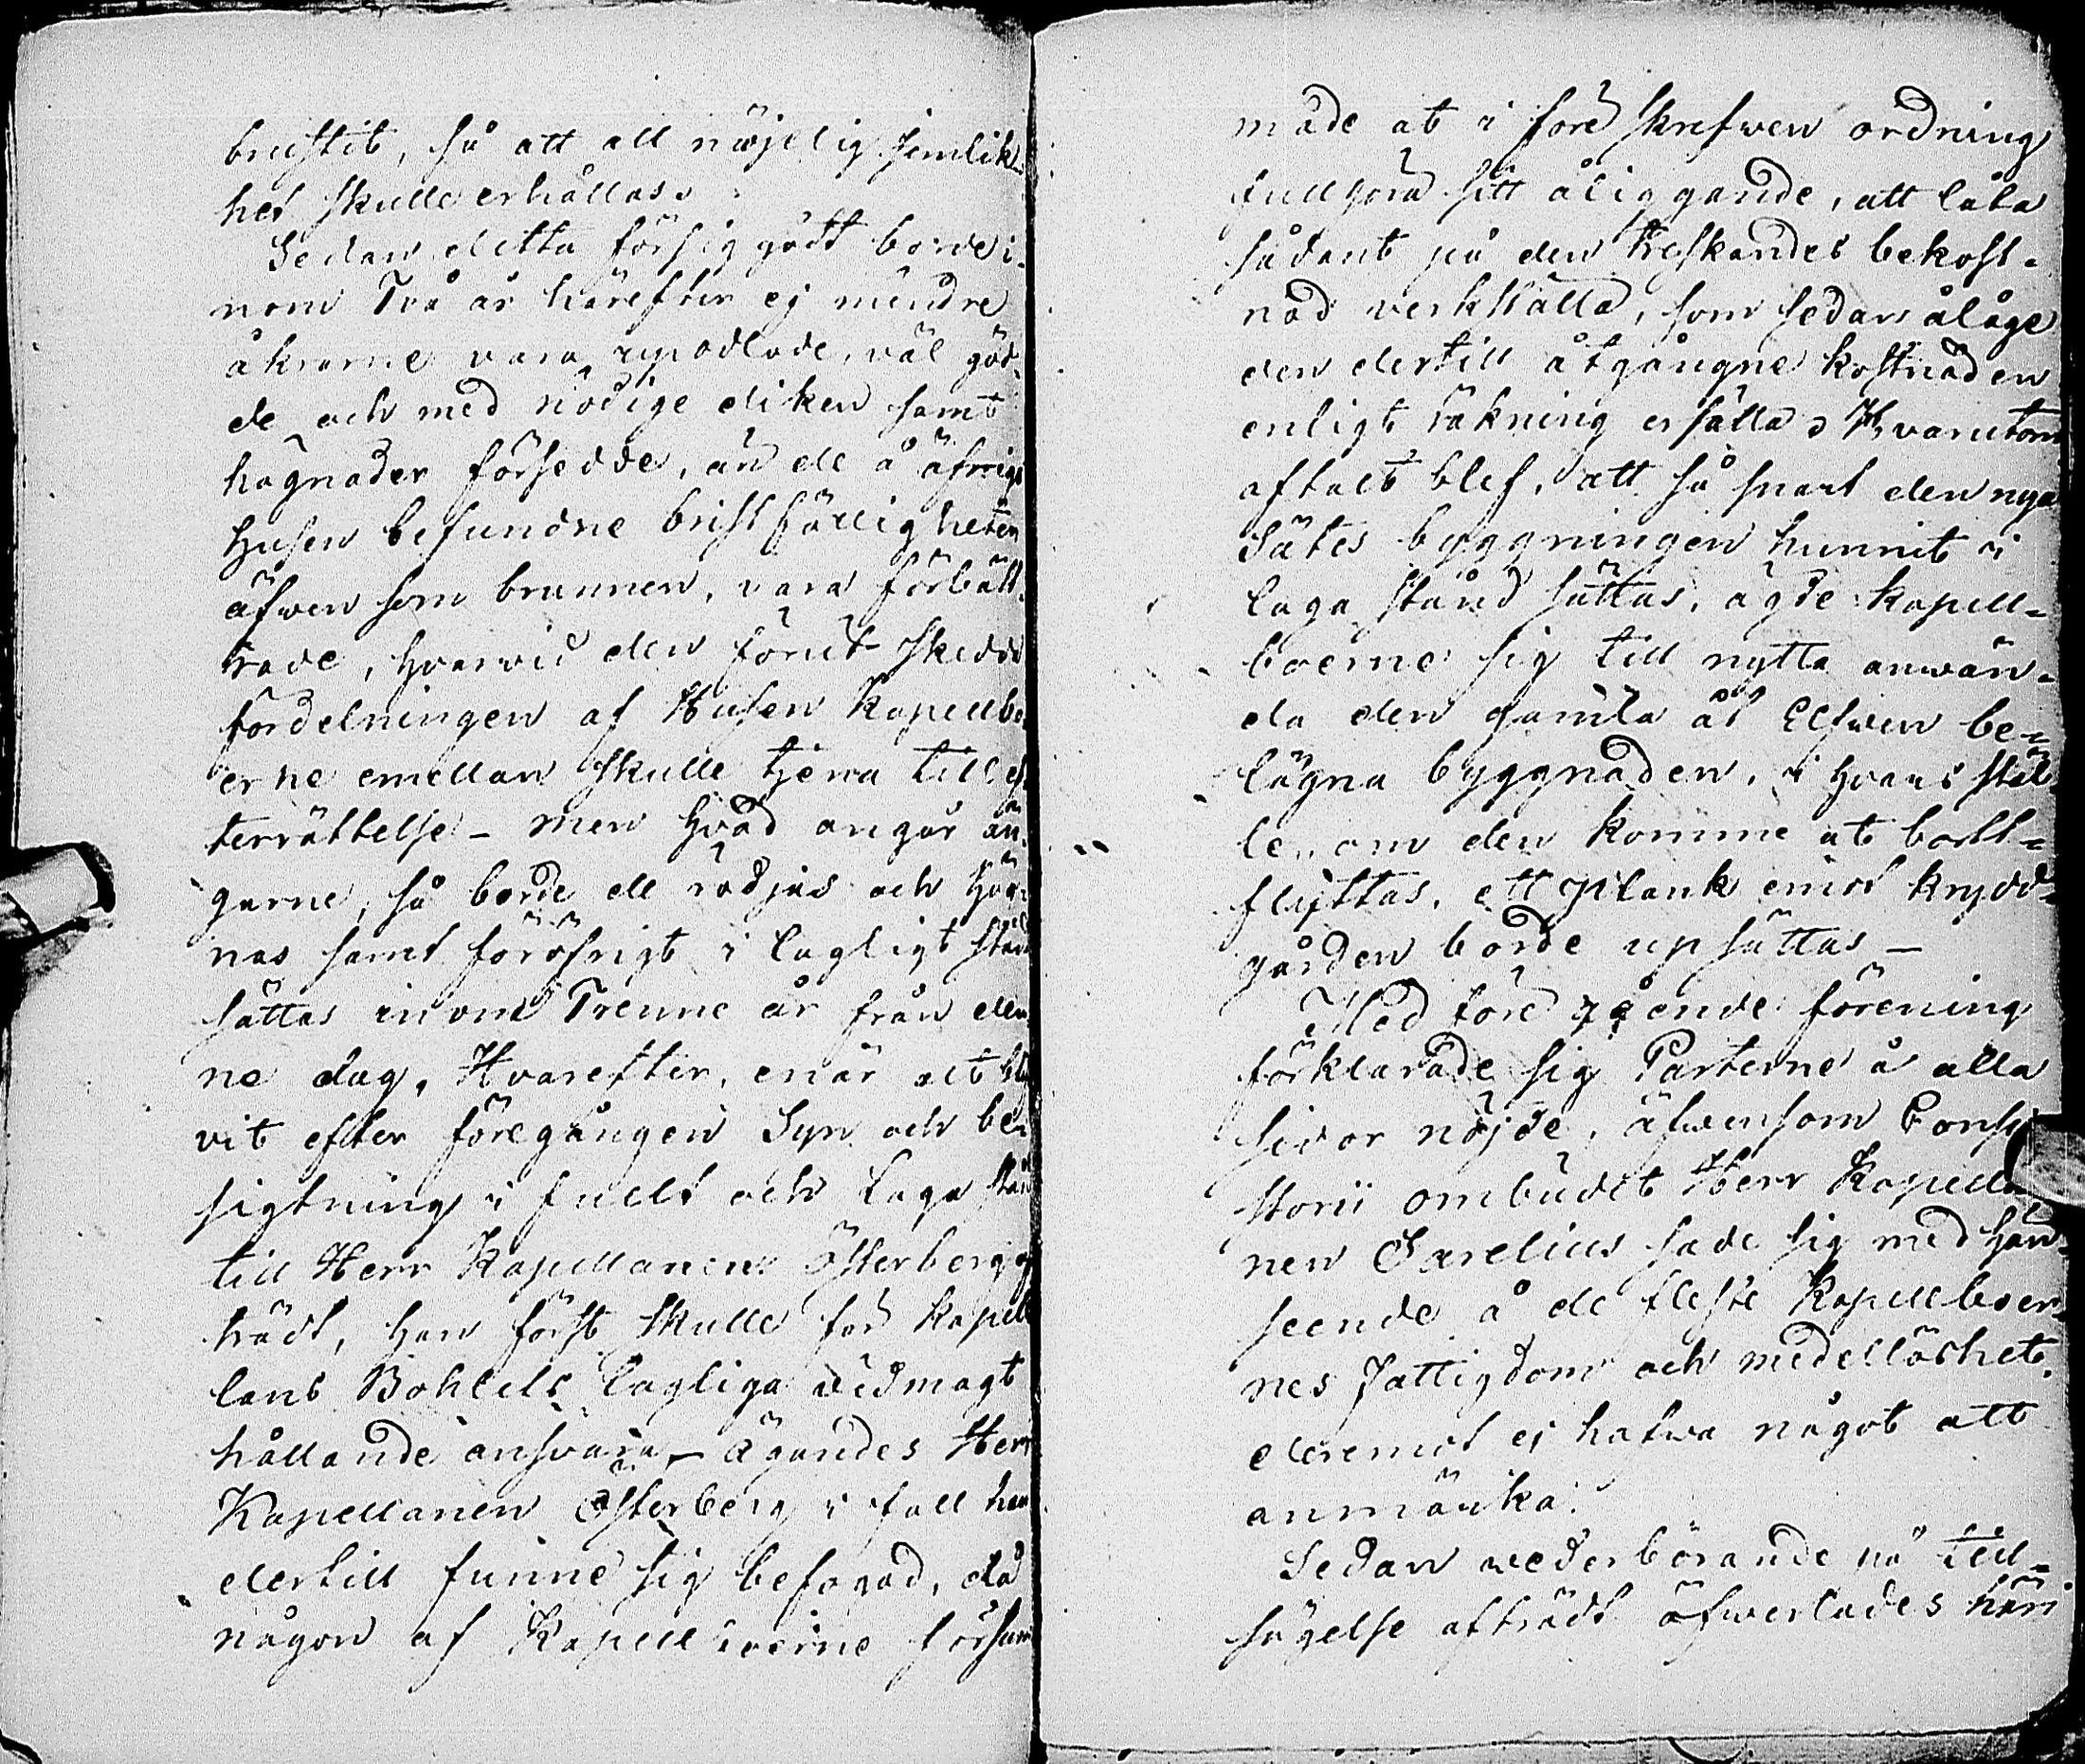 brustit, så att all möjelig jemlik-
het skulle erhållas.
Sedan detta försiggådt borde i-
nom Två år härefter ej mindre
åkrarne vara upodlade, väl göd-
de och med nödige diken samt
hägnader försedde, än de å öfrige
Husen befundne bristfälligheter
äfwen som brunnen, vara förbätt-
rade, hvarvid den förut skedde
fördelningen af Husen Kapellbo-
erne emellan skulle tjena till ef-
terrättelse – men hvad angår än-
garne, så borde de rödjas och
nas samt föröfrigt i lagligt stånd
sättas inom Trenne år från den-
ne dag, Hvarefter, enär alt bli-
vit efter föregången Syn och be-
sigtning i fullt och laga stånd
till Herr Kapellanen Österberg
trädt, han först skulle för Kapel-
lans Bohlets lagliga vidmagt
hållande ansvara, – ägandes Herr
Kapellanen Österberg i fall han
dertill funne sig befogad, då
någon af Kapellboerne försum-
made at i föreskrefwen ordning
fullgöra sitt åliggande, att låta
sådant på den Treskandes bekost-
nad verkställa, som sedan ålåge
den dertill åtgångne kostnaden
enligt räkning ersätta. Hvarutom
aftalt blef, att så snart den nya
Sätesbyggningen hunnit i
laga stånd sättas, ägde Kapell-
boerne sig till nytta anwän-
da den gamla åt Elfwen be-
lägna byggnaden, i hvars stäl-
le, om den komme at bort-
flyttas, ett plank emot krydd-
gården borde upsättas –
Med föregående förening
förklarade sig Parterne å alla
sidor nöjde, äfwensom Consi-
storii ombudet Herr Kapella-
nen Sarelius sade sig med hän-
seende å de fleste Kapellboer-
nes fattigdom och medellöshet
deremot ej hafwa något att
anmärka.
Sedan wederbörande på till-
sägelse afträdt öfwerlades häri